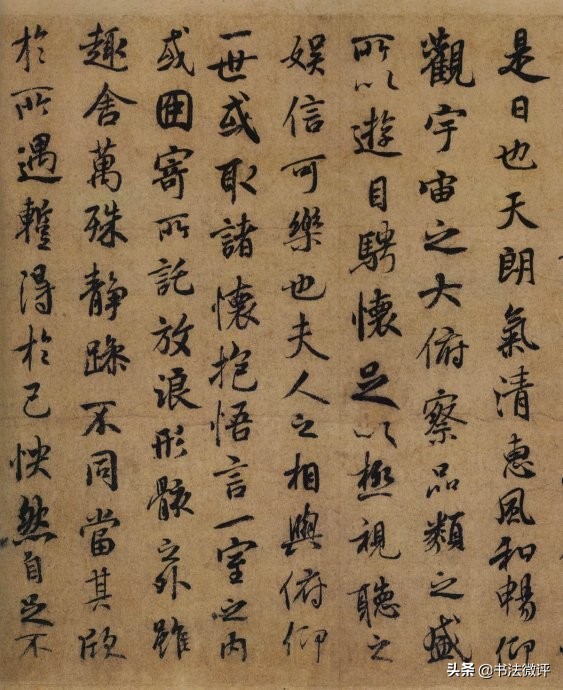 是日也天朗氣清惠風和暢仰
觀宇宙之大俯察品類之盛
所以遊目騁懷足以極視聽之
娛信可樂也夫人之相與俯仰
一世或取諸懷抱悟言一室之内
或因寄所託放浪形骸之外雖
趣舍萬殊静躁不同當其欣
於所遇蹔得於己怏然自足不
头条 @书法微评